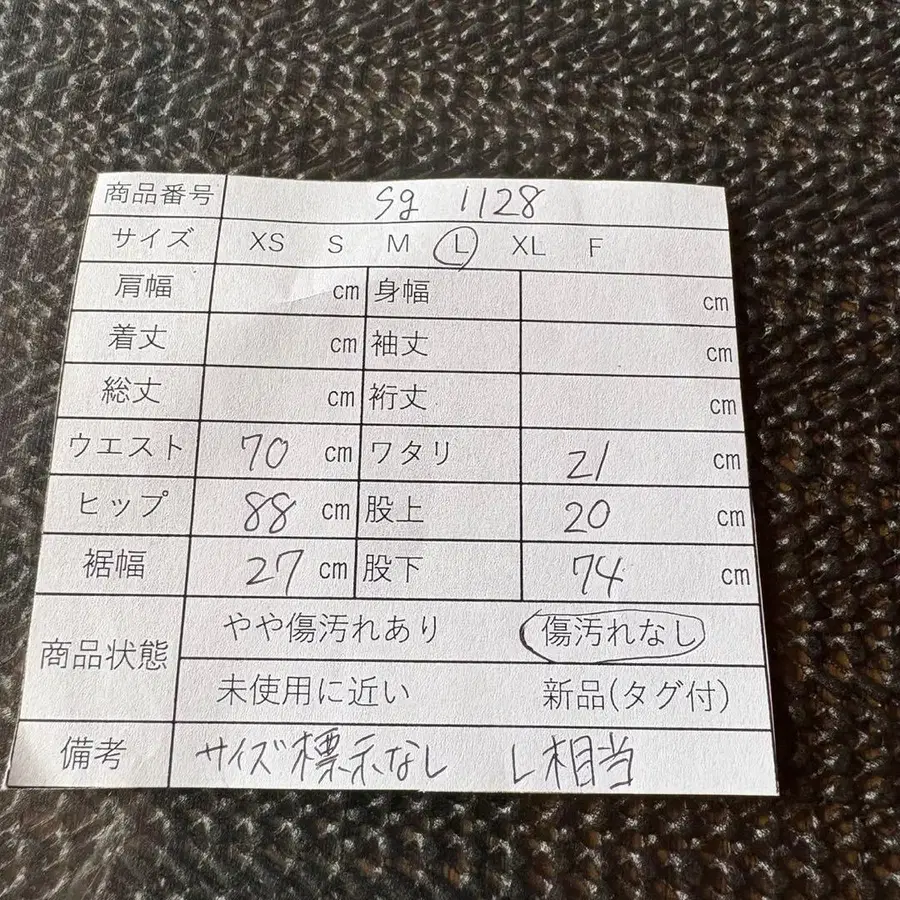 商品番号 Sg 1128
サイズ XS S M L XL F
肩幅 cm 身幅 cm
着丈 cm 袖丈 cm
総丈 cm 裄丈 cm
ウエスト 70 cm ワタリ 21 cm
ヒップ 88 cm 股上 20 cm
裾幅 27 cm 股下 74 cm
商品状態 やや傷汚れあり 傷汚れなし
未使用に近い 新品(タグ付)
備考 サイズ標示なし L相当